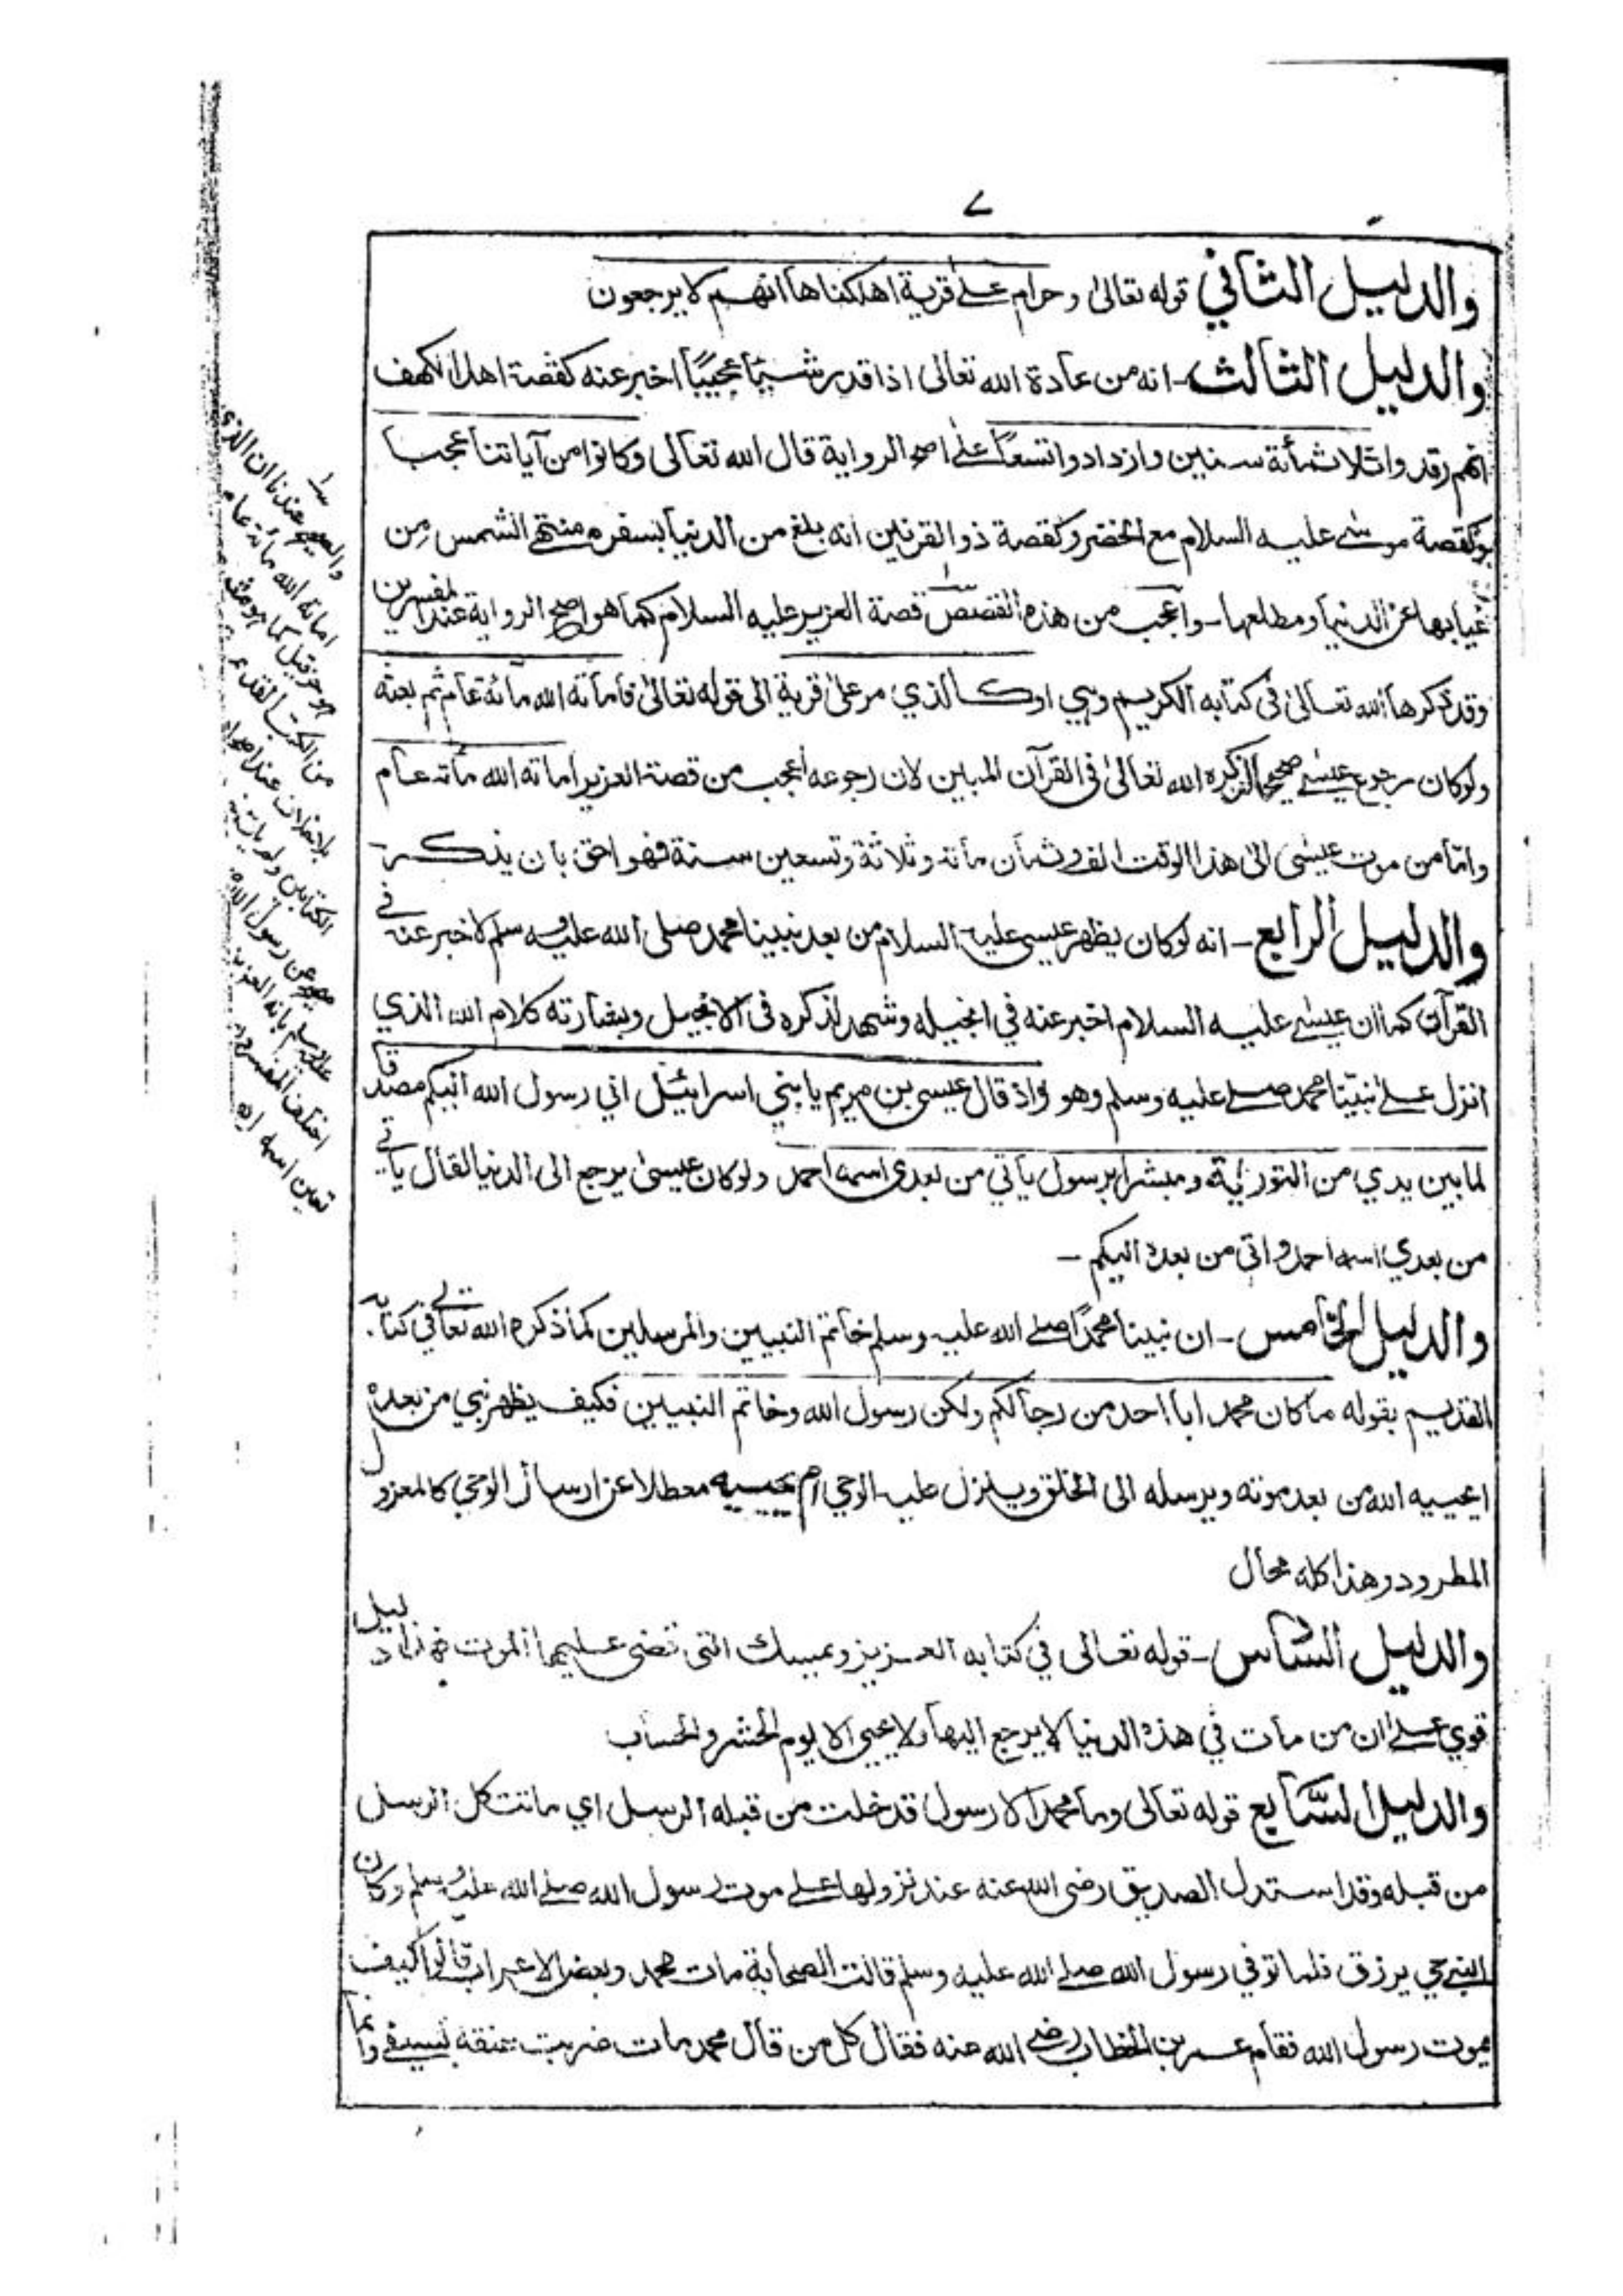 ٧
والدليل الثاني قوله تعالى وحرام على قرية اهلكناها انهم لا يرجعون
والدليل الثالث - انه من عادة الله تعالى اذا قدر شيئا عجيبًا اخبر عنه كقصة اهل الكهف
انهم رقدوا ثلاثمأئة سنين وازدادوا تسعًا على اصح الرواية قال الله تعالى وكانوا من آياتنا عجبا
وكقصة موسى عليه السلام مع الخضر وكقصة ذو القرنين انه بلغ من الدنيا بسفره منتهى الشمس من
غيابها عن الدنيا ومطلعها - واعجب من هذه القصص قصة العزير عليه السلام كما هو اصح الرواية عند المفسرين
وقد ذكرها الله تعالى في كتابه الكريم وهي او كالذي مر على قرية الى قوله تعالى فاماته الله مائة عام ثم بعثه
ولو كان رجوع عيسى صحيحا لذكره الله تعالى في القرآن المبين لان رجوعه اعجب من قصة العزير اماته الله مأته عام
واما من موت عيسى الى هذا الوقت الف وثمان مأته وثلاثة وتسعين سنة فهو احق بان يذكر -
والدليل الرابع - انه لو كان يظهر عيسى عليه السلام من بعد نبينا محمد صلى الله عليه وسلم لاخبر عنه في
القرآن كما ان عيسى عليه السلام اخبر عنه في انجيله وشهد لذكره في الانجيل وبشارته كلام الله الذي
انزل على نبيّنا محمد صلى عليه وسلم وهو واذ قال عيسى بن مريم يا بني اسرائيل اني رسول الله اليكم مصدقا
لما بين يدي من التورية ومبشرا برسول يأتي من بعدي اسمه احمد ولو كان عيسى يرجع الى الدنيا لقال يأتي
من بعدي اسمه احمد واتى من بعده اليكم -
والدليل الخامس - ان نبينا محمدًا صلى الله عليه وسلم خاتم النبيين والمرسلين كما ذكره الله تعالى في كتابه
القديم بقوله ما كان محمد ابا احد من رجالكم ولكن رسول الله وخاتم النبيين فكيف يظهر نبي من بعده
ايحييه الله من بعد موته ويرسله الى الخلق وينزل عليه الوحي ام يحييه معطلا عن ارسال الوحي كالمعزول
المطرود وهذا كله محال
والدليل السادس - قوله تعالى في كتابه العزيز ويمسك التى قضى عليها الموت فهذا دليل
قوي على ان من مات في هذه الدنيا لا يرجع اليها ولا يحيى الا يوم الحشر والحساب
والدليل السَّابع قوله تعالى وما محمد الا رسول قد خلت من قبله الرسل اي ماتت كل الرسل
من قبله وقد استدل الصديق رضى الله عنه عند نزولها على موت رسول الله صلى الله عليه وسلم وكان
النبي حي يرزق فلما توفي رسول الله صلى الله عليه وسلم قالت الصحابة مات محمد وبعض الاعراب قالوا كيف
يموت رسول الله فقام عمر بن الخطاب رضى الله عنه فقال كل من قال محمد مات ضربت عنقه بسيفى وانما
والصحيح عندنا ان الذي
اماته الله مائة عام
هو حزقيل كما هو مثبت
من الكتب القدم
بلا خلاف عند اهل
الكتابين ولم يأت
عن رسول الله
عليه وسلم بانه العزير
اختلف المفسرون
تعين اسمه